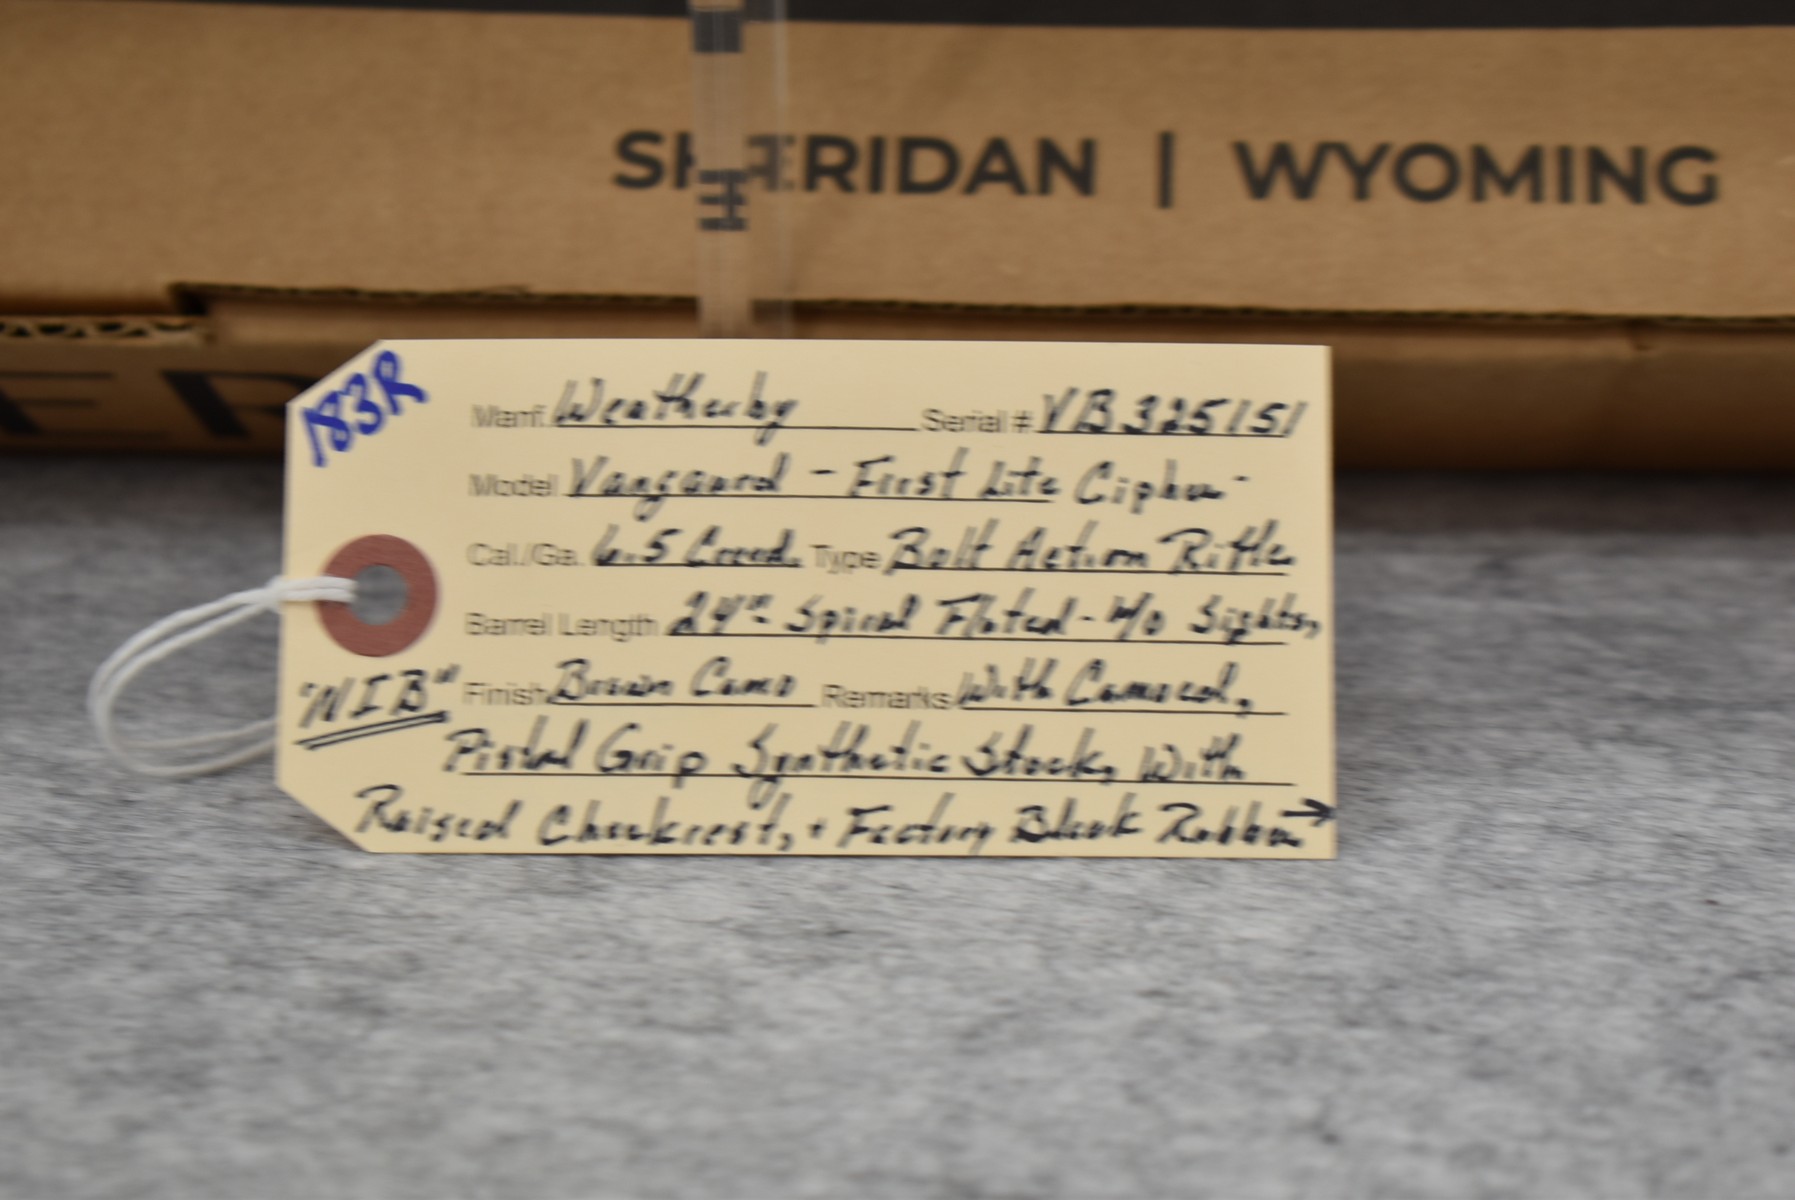 SHERIDAN | WYOMING
ER
183R
Manf. Weatherby Serial # VB325151
Model Vanguard - First Lite Cipher -
Cal./Ga. 6.5 Creed. Type Bolt Action Rifle
Barrel Length 24" Spiral Fluted - W/O Sights,
"NIB" Finish Brown Camo Remarks With Camoed,
Pistol Grip Synthetic Stock, With
Raised Cheekrest, + Factory Black Rubber →